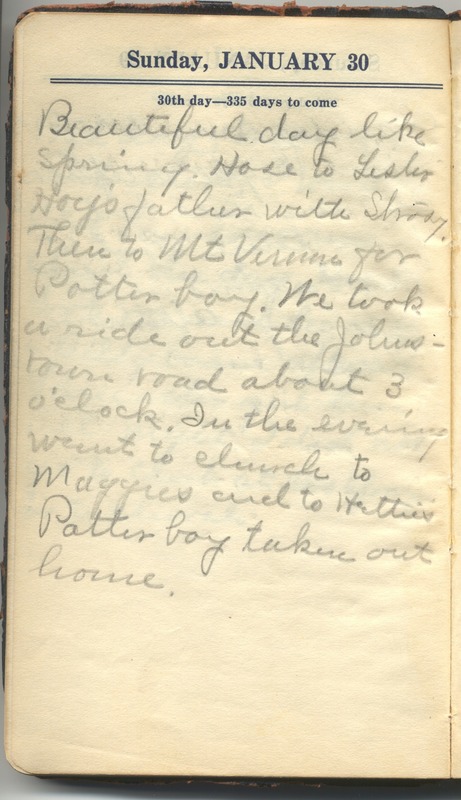 Sunday, JANUARY 30
30th day—335 days to come
Beautiful day like
Spring. Hose to Lester
Hoy's father with
Then to Mt Vernon for
Potter boy. We took
a ride out the Johns-
town road about 3
o'clock. In the evening
went to church to
Maggies and to Hettie's
Potter boy taken out
home.